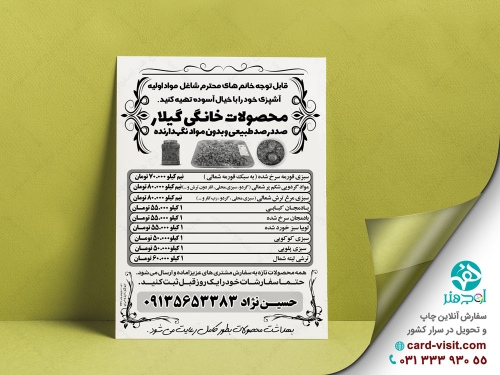 قابل توجه خانم های محترم شاغل مواد اولیه
آشپزی خود را با خیال آسوده تهیه کنید.
محصولات خانگی گیلار
صددرصد طبیعی و بدون مواد نگهدارنده
سبزی قورمه سرخ شده (به سبک قورمه شمالی) نیم کیلو ۷۰.۰۰۰ تومان
مواد گردویی شکم پر شمالی (گردو، سبزی محلی، انار دون ترش و...) نیم کیلو ۸۰.۰۰۰ تومان
سبزی مرغ ترش شمالی (سبزی محلی، گردو، رب انار و...) نیم کیلو ۸۰.۰۰۰ تومان
بادمجان کبابی ۱ کیلو ۵۵.۰۰۰ تومان
بادمجان سرخ شده ۱ کیلو ۵۵.۰۰۰ تومان
لوبیا سبز خورد شده ۱ کیلو ۵۵.۰۰۰ تومان
سبزی کوکویی ۱ کیلو ۵۰.۰۰۰ تومان
سبزی پلویی ۱ کیلو ۵۰.۰۰۰ تومان
ترشی لیته شمال ۱ کیلو ۶۰.۰۰۰ تومان
همه محصولات تازه به سفارش مشتری های عزیز آماده و ارسال می شود.
حتما سفارشات خود را یک روز قبل ثبت کنید.
حسین نژاد ۰۹۱۳۵۶۵۳۳۸۳
بهداشت محصولات بطور کامل رعایت می شود.
اوج هنر
سفارش آنلاین چاپ
و تحویل در سرار کشور
card-visit.com
۰۳۱ ۳۳۳ ۹۳۰ ۵۵